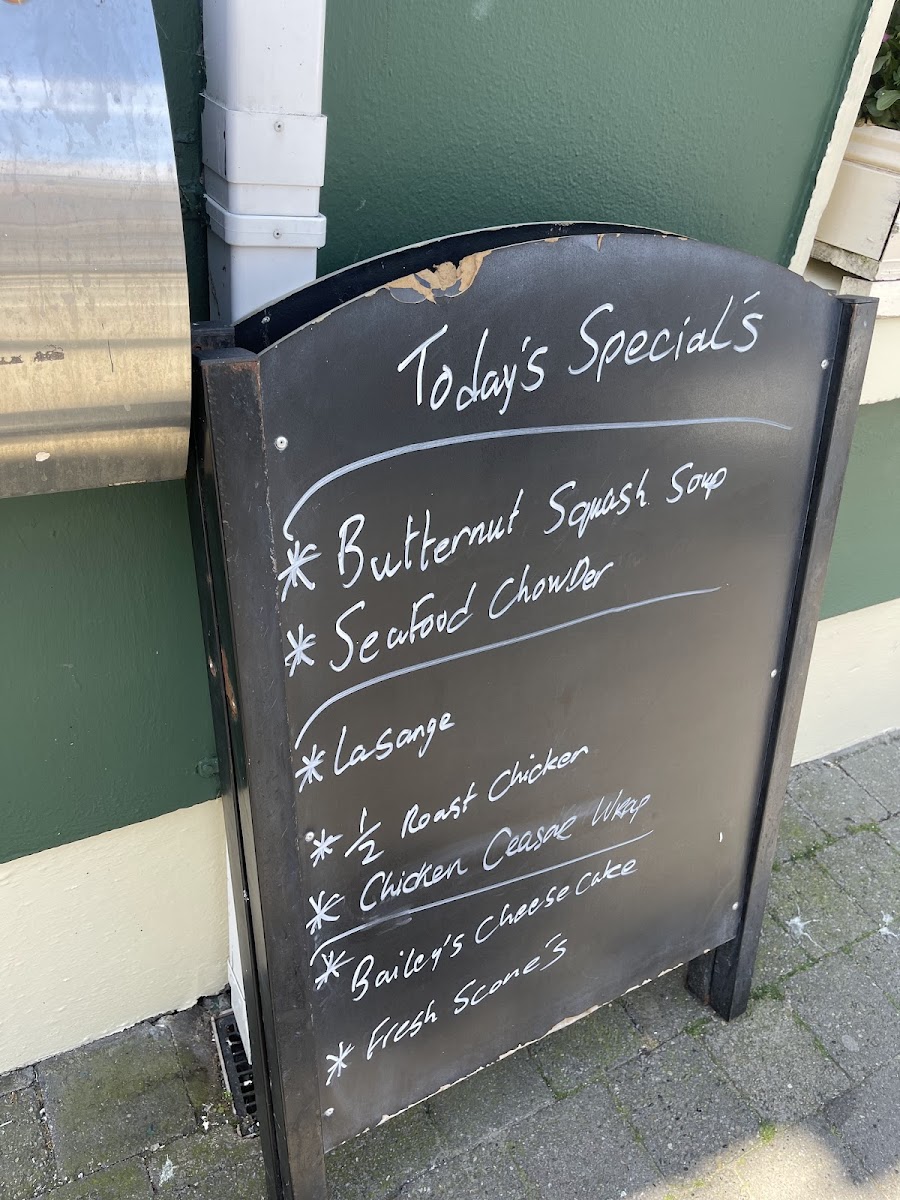 Today's Special's
* Butternut Squash Soup
* Seafood Chowder
* Lasange
* 1/2 Roast Chicken
* Chicken Ceasar Wrap
* Bailey's Cheese Cake
* Fresh Scone's